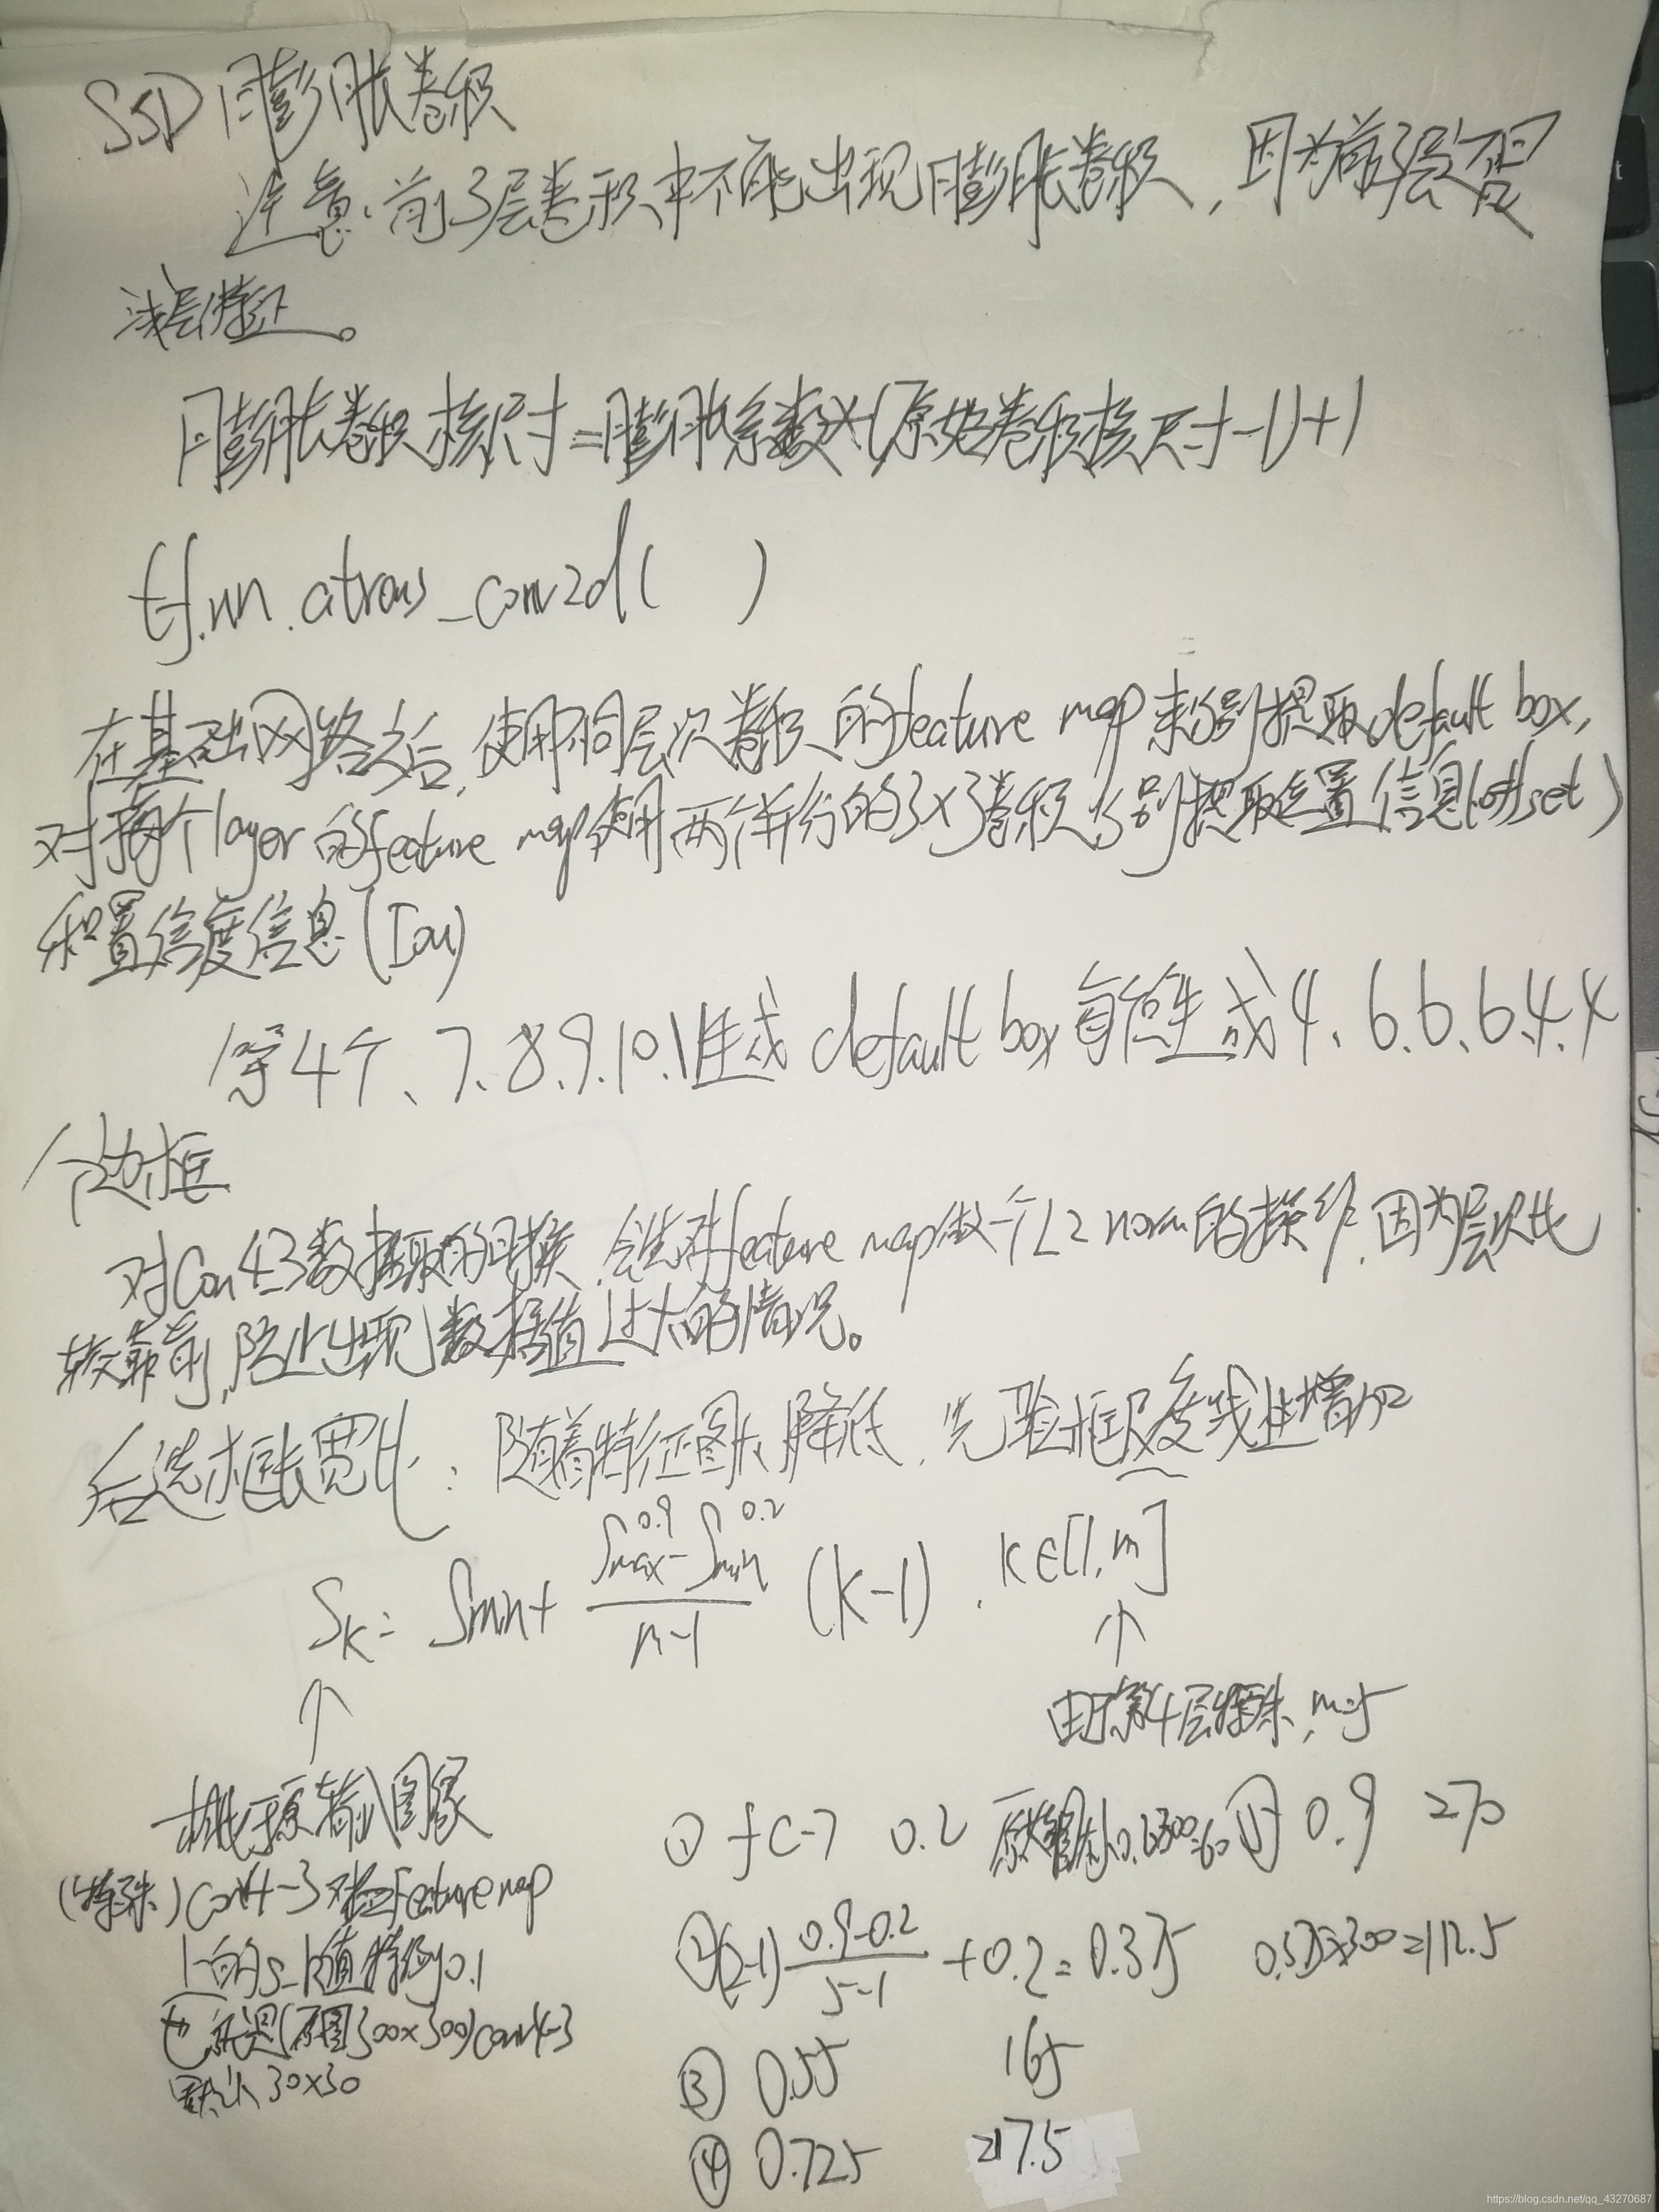 SSD 膨胀卷积
注意:前3层卷积中不能出现膨胀卷积,因为前3层
浅层特征。
膨胀卷积核尺寸=膨胀系数×(原始卷积核尺寸-1)+1
tf.nn.atrous_conv2d( )
在基础网络之后,使用不同层次卷积的feature map来分别提取default box,
对每个layer的feature map使用两个并行的3×3卷积分别提取位置信息(offset)
和置信度信息(Iou)
第4个、7、8、9、10、11生成default box每个位生成4、6、6、6、4、4
个边框
对Con4-3数据的,会先对feature map做一个L2 norm的操作,因为层次比
较靠前,防止出现数据值过大的情况。
后选框长宽比:随着特征图大小降低,先验框尺度线性增加
0.9 0.2
Sk= Smin+ Smax-Smin / m-1 (k-1), k∈[1,m]
由于第4层特殊,m=5
相对于原输入图像
(特殊)Con4-3对应feature map
上的s_k值特殊为0.1
也就是(原图300×300)conv4-3
默认30×30
① fc-7 0.2 0.2×300=60 ⑤ 0.9 270
②(2-1) 0.9-0.2 / 5-1 +0.2=0.375 0.375×300=112.5
③ 0.55 165
④ 0.725 217.5
https://blog.csdn.net/qq_43270687